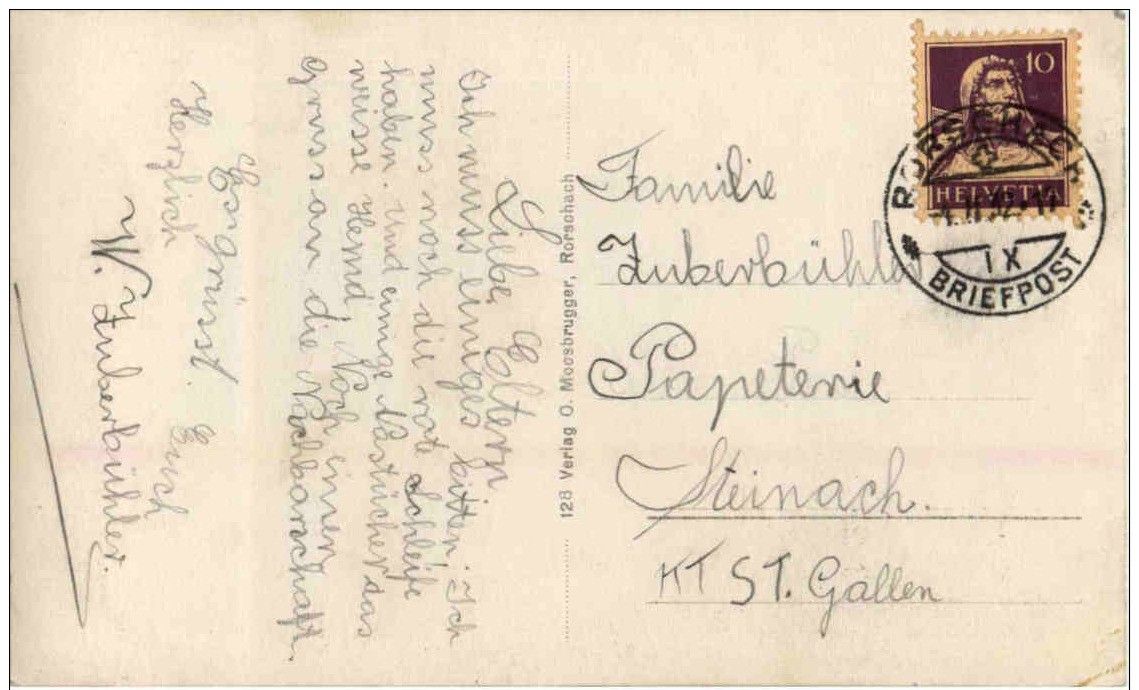 Liebe Eltern
Ich muss einiges bitten. Ich
muss noch die rote Schleife
haben. Und einige Nastücher das
weisse Hemd Noch einen
Gruss an die Nachbarschaft.
Es grüsst Euch
Herzlich
W. Zuberbühler.
128 Verlag O. Moosbrugger, Rorschach
Familie
Zuberbühler
Papeterie
Steinach.
KT ST. Gallen
10
HELVETIA
RORSCHACH
IX
BRIEFPOST